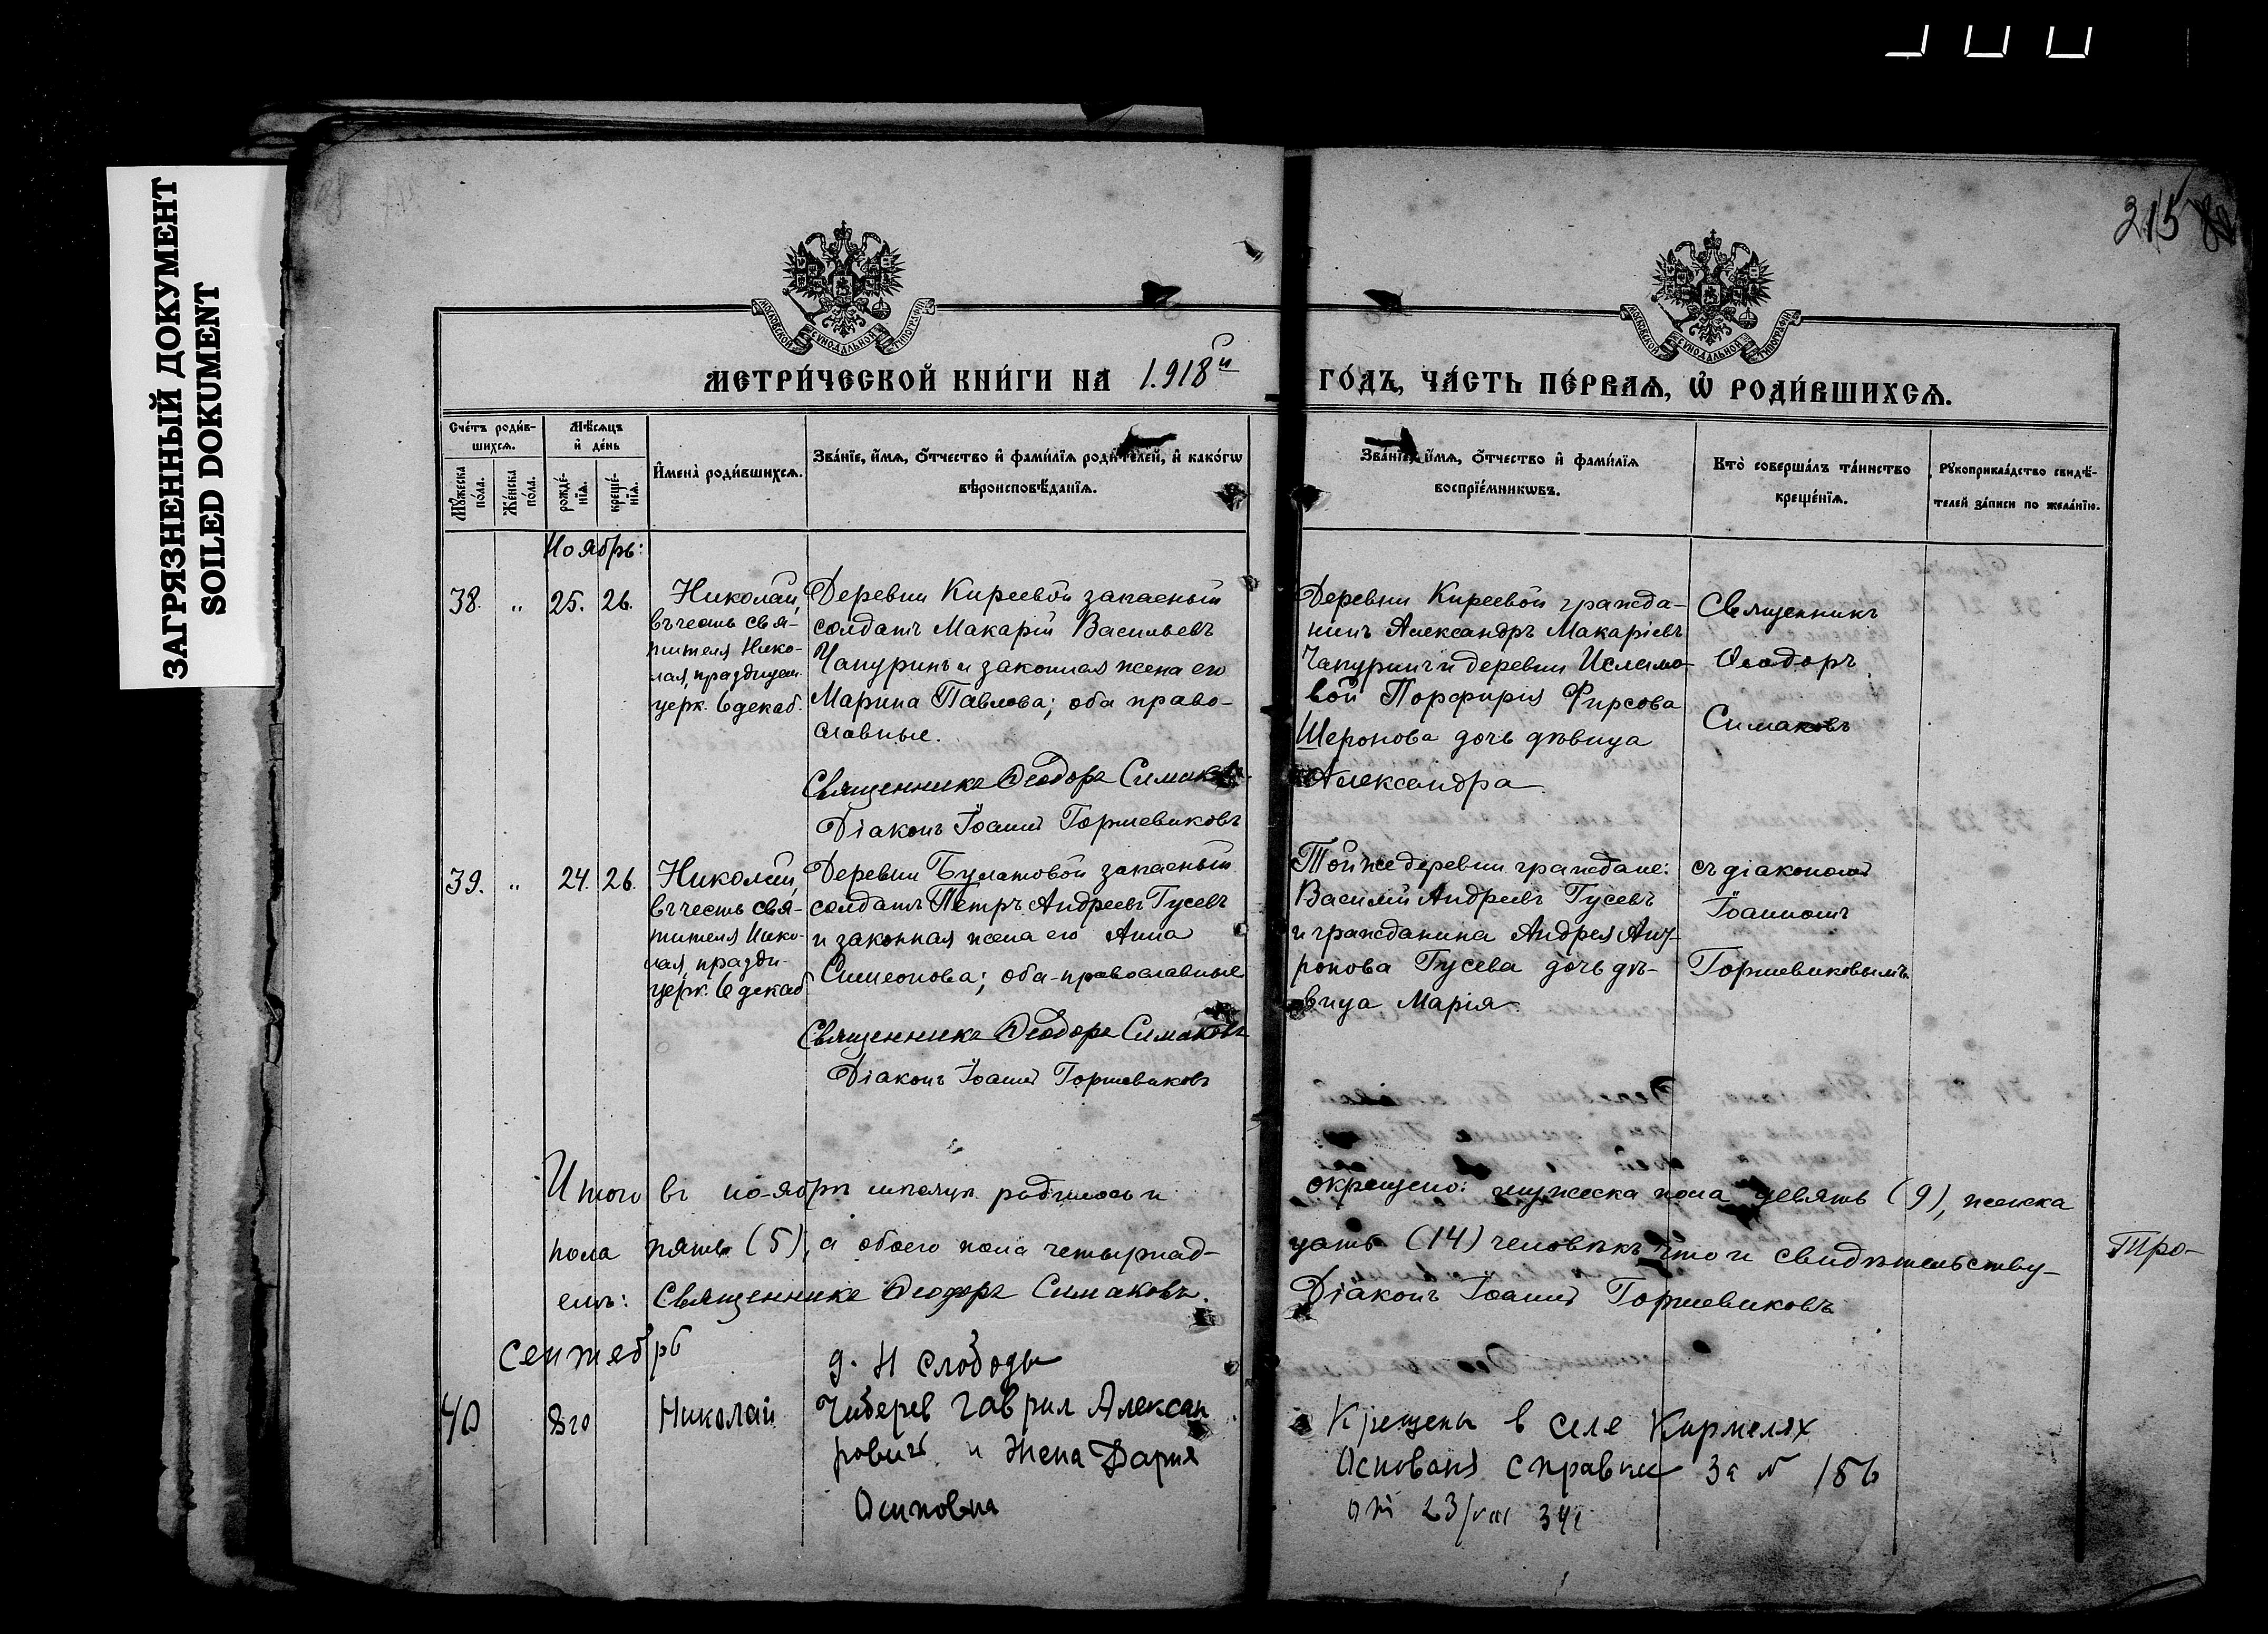 ЗАГРЯЗНЕННЫЙ ДОКУМЕНТ
SOILED DOKUMENT
215
МОСКОВСКОЙ СѴНОДАЛЬНОЙ ТИПОГРАФІИ
МОСКОВСКОЙ СѴНОДАЛЬНОЙ ТИПОГРАФІИ
МЕТРИ́ЧЕСКОЙ КНИ́ГИ НА 1.918й ГО́ДЪ, ЧА́СТЬ ПЕ́РВАѦ, Ѡ҆ РОДИ́ВШИХСѦ.
Сче́тъ роди́в-
шихсѧ.
Мꙋ́жеска по́ла.
Же́нска по́ла.
Мѣ́сѧцъ
и҆ де́нь
рожде́-
нїѧ.
креще́-
нїѧ.
И҆мена̀ роди́вшихсѧ.
Зва́нїе, и҆́мѧ, ѻ҆́тчество и҆ фами́лїѧ роди́телей, и҆ како́гѡ
вѣроисповѣ́данїѧ.
Зва́нїе, и҆́мѧ, ѻ҆́тчество и҆ фами́лїѧ
воспрїе́мникѡвъ.
Кто̀ соверша́лъ та́инство
креще́нїѧ.
Рꙋкоприкла́дство свидѣ́-
телей за́писи по жела́нїю.
Ноябрь:
38. " 25. 26.
Николай,
въ честь свя-
тителя Нико-
лая, празднуем.
церк. 6 декаб.
Деревни Киреевой запасный
солдатъ Макарій Васильевъ
Чапуринъ и законная жена его
Марина Павлова; оба право-
славные.
Священникъ Ѳеодоръ Симаковъ.
Діаконъ Іоаннъ Горшевиковъ
Деревни Киреевой гражда-
нинъ Александръ Макаріевъ
Чапуринъ и деревни Исламо-
вой Порфирія Фирсова
Шеронова дочь дѣвица
Александра
Священникъ
Ѳеодоръ
Симаковъ
39. " 24. 26.
Николай,
въ честь свя-
тителя Нико-
лая, праздн.
церк. 6 декаб.
Деревни Булатовой запасный
солдатъ Петръ Андреевъ Гусевъ
и законная жена его Анна
Симеонова; оба-православные
Священникъ Ѳеодоръ Симаковъ
Діаконъ Іоаннъ Горшевиковъ
Той же деревни граждане:
Василій Андреевъ Гусевъ
и гражданина Андрея Анд-
ронова Гусева дочь дѣ-
вица Марія
съ діакономъ
Іоанномъ
Горшевиковымъ.
Итого въ ноябрѣ мѣсяцѣ родилось и окрещено: мужеска пола девять (9), женска
пола пять (5), а обоего пола четырнад- цать (14) человѣкъ, что и свидѣтельству- Тро-
емъ: Священникъ Ѳеодоръ Симаковъ. Діаконъ Іоаннъ Горшевиковъ
Сентябрь
д. Н Слободы
40 8го Николай Чиберев Гаврил Алексан
ровичь и жена Дария
Осиповна
Крещены в селе Кирмелях
Основаня справки за № 186
от 23/VIII 34г